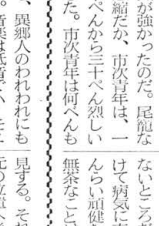 が強かったのだ。尾龍な
紹だか、市次青年は、一
ぺんから三十ぺん烈しい
た。市次青年は何べんも
、異郷人のわれわれにも
ないところだ
けて病気に
んらい頑健な
無茶なこと
見する。それ